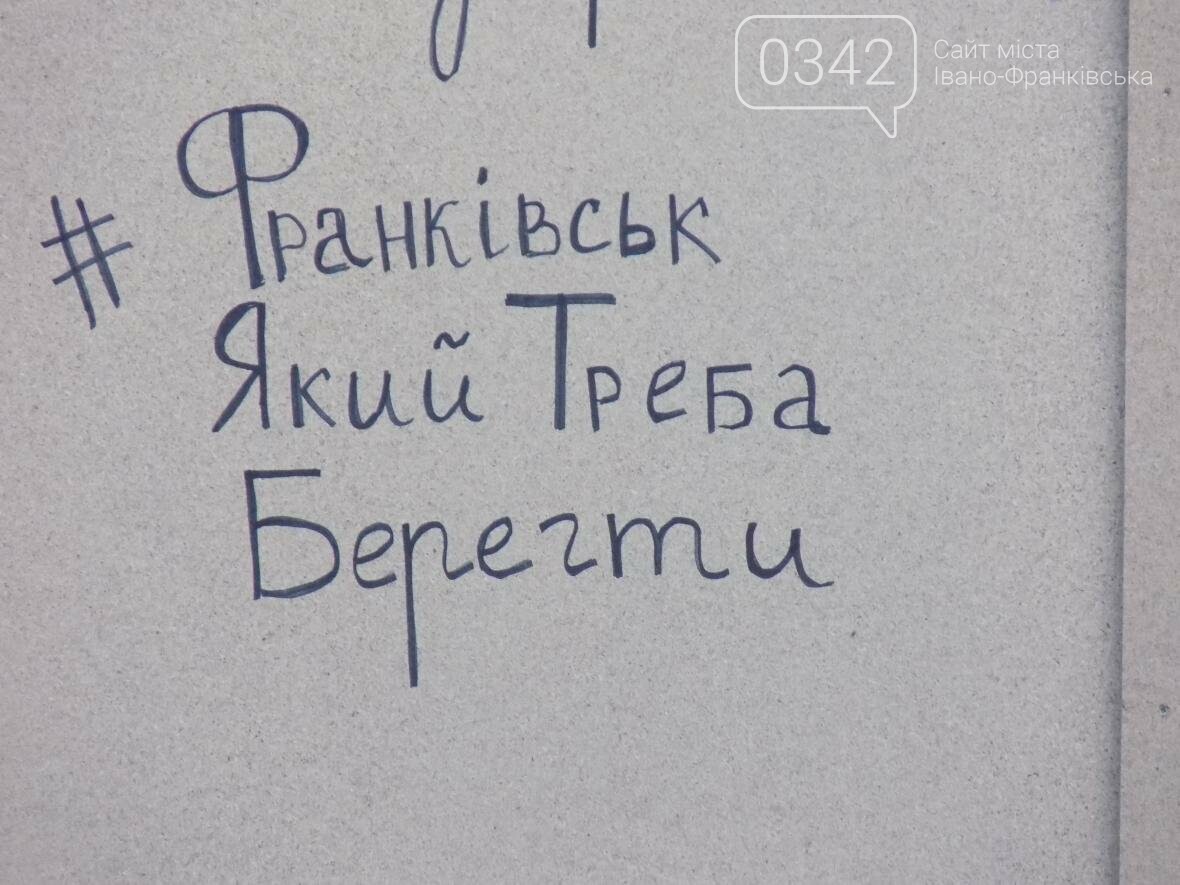 0342
Сайт міста
Івано-Франківська
# Франківськ
Який Треба
Берегти